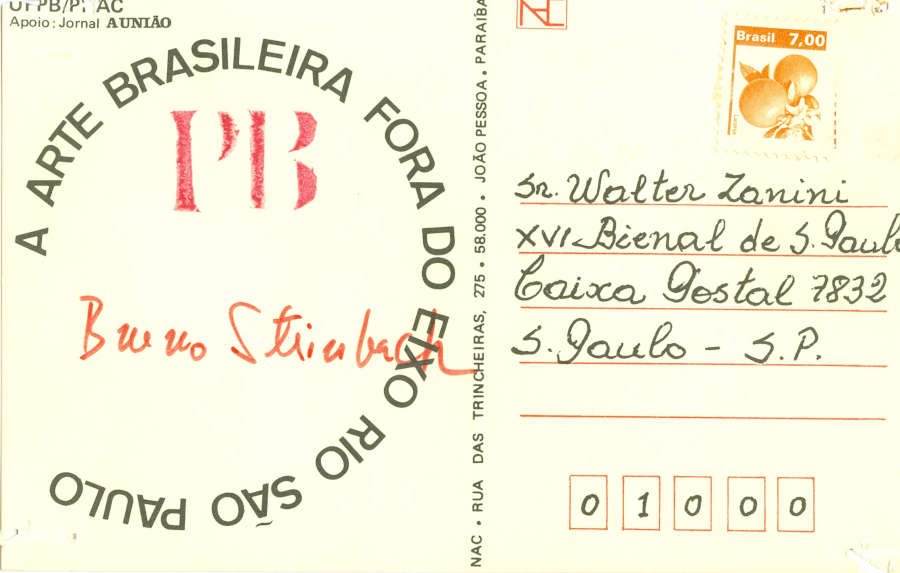 UFPB/PRAC
Apoio: Jornal A UNIÃO
A ARTE BRASILEIRA FORA DO EIXO RIO SÃO PAULO
PB
Bruno Steinbach
NAC • RUA DAS TRINCHEIRAS, 275 • 58.000 • JOÃO PESSOA • PARAÍBA
Brasil 7,00
Laranja
Sr. Walter Zanini
XVI Bienal de S. Paulo
Caixa Postal 7832
S. Paulo - S.P.
0 1 0 0 0